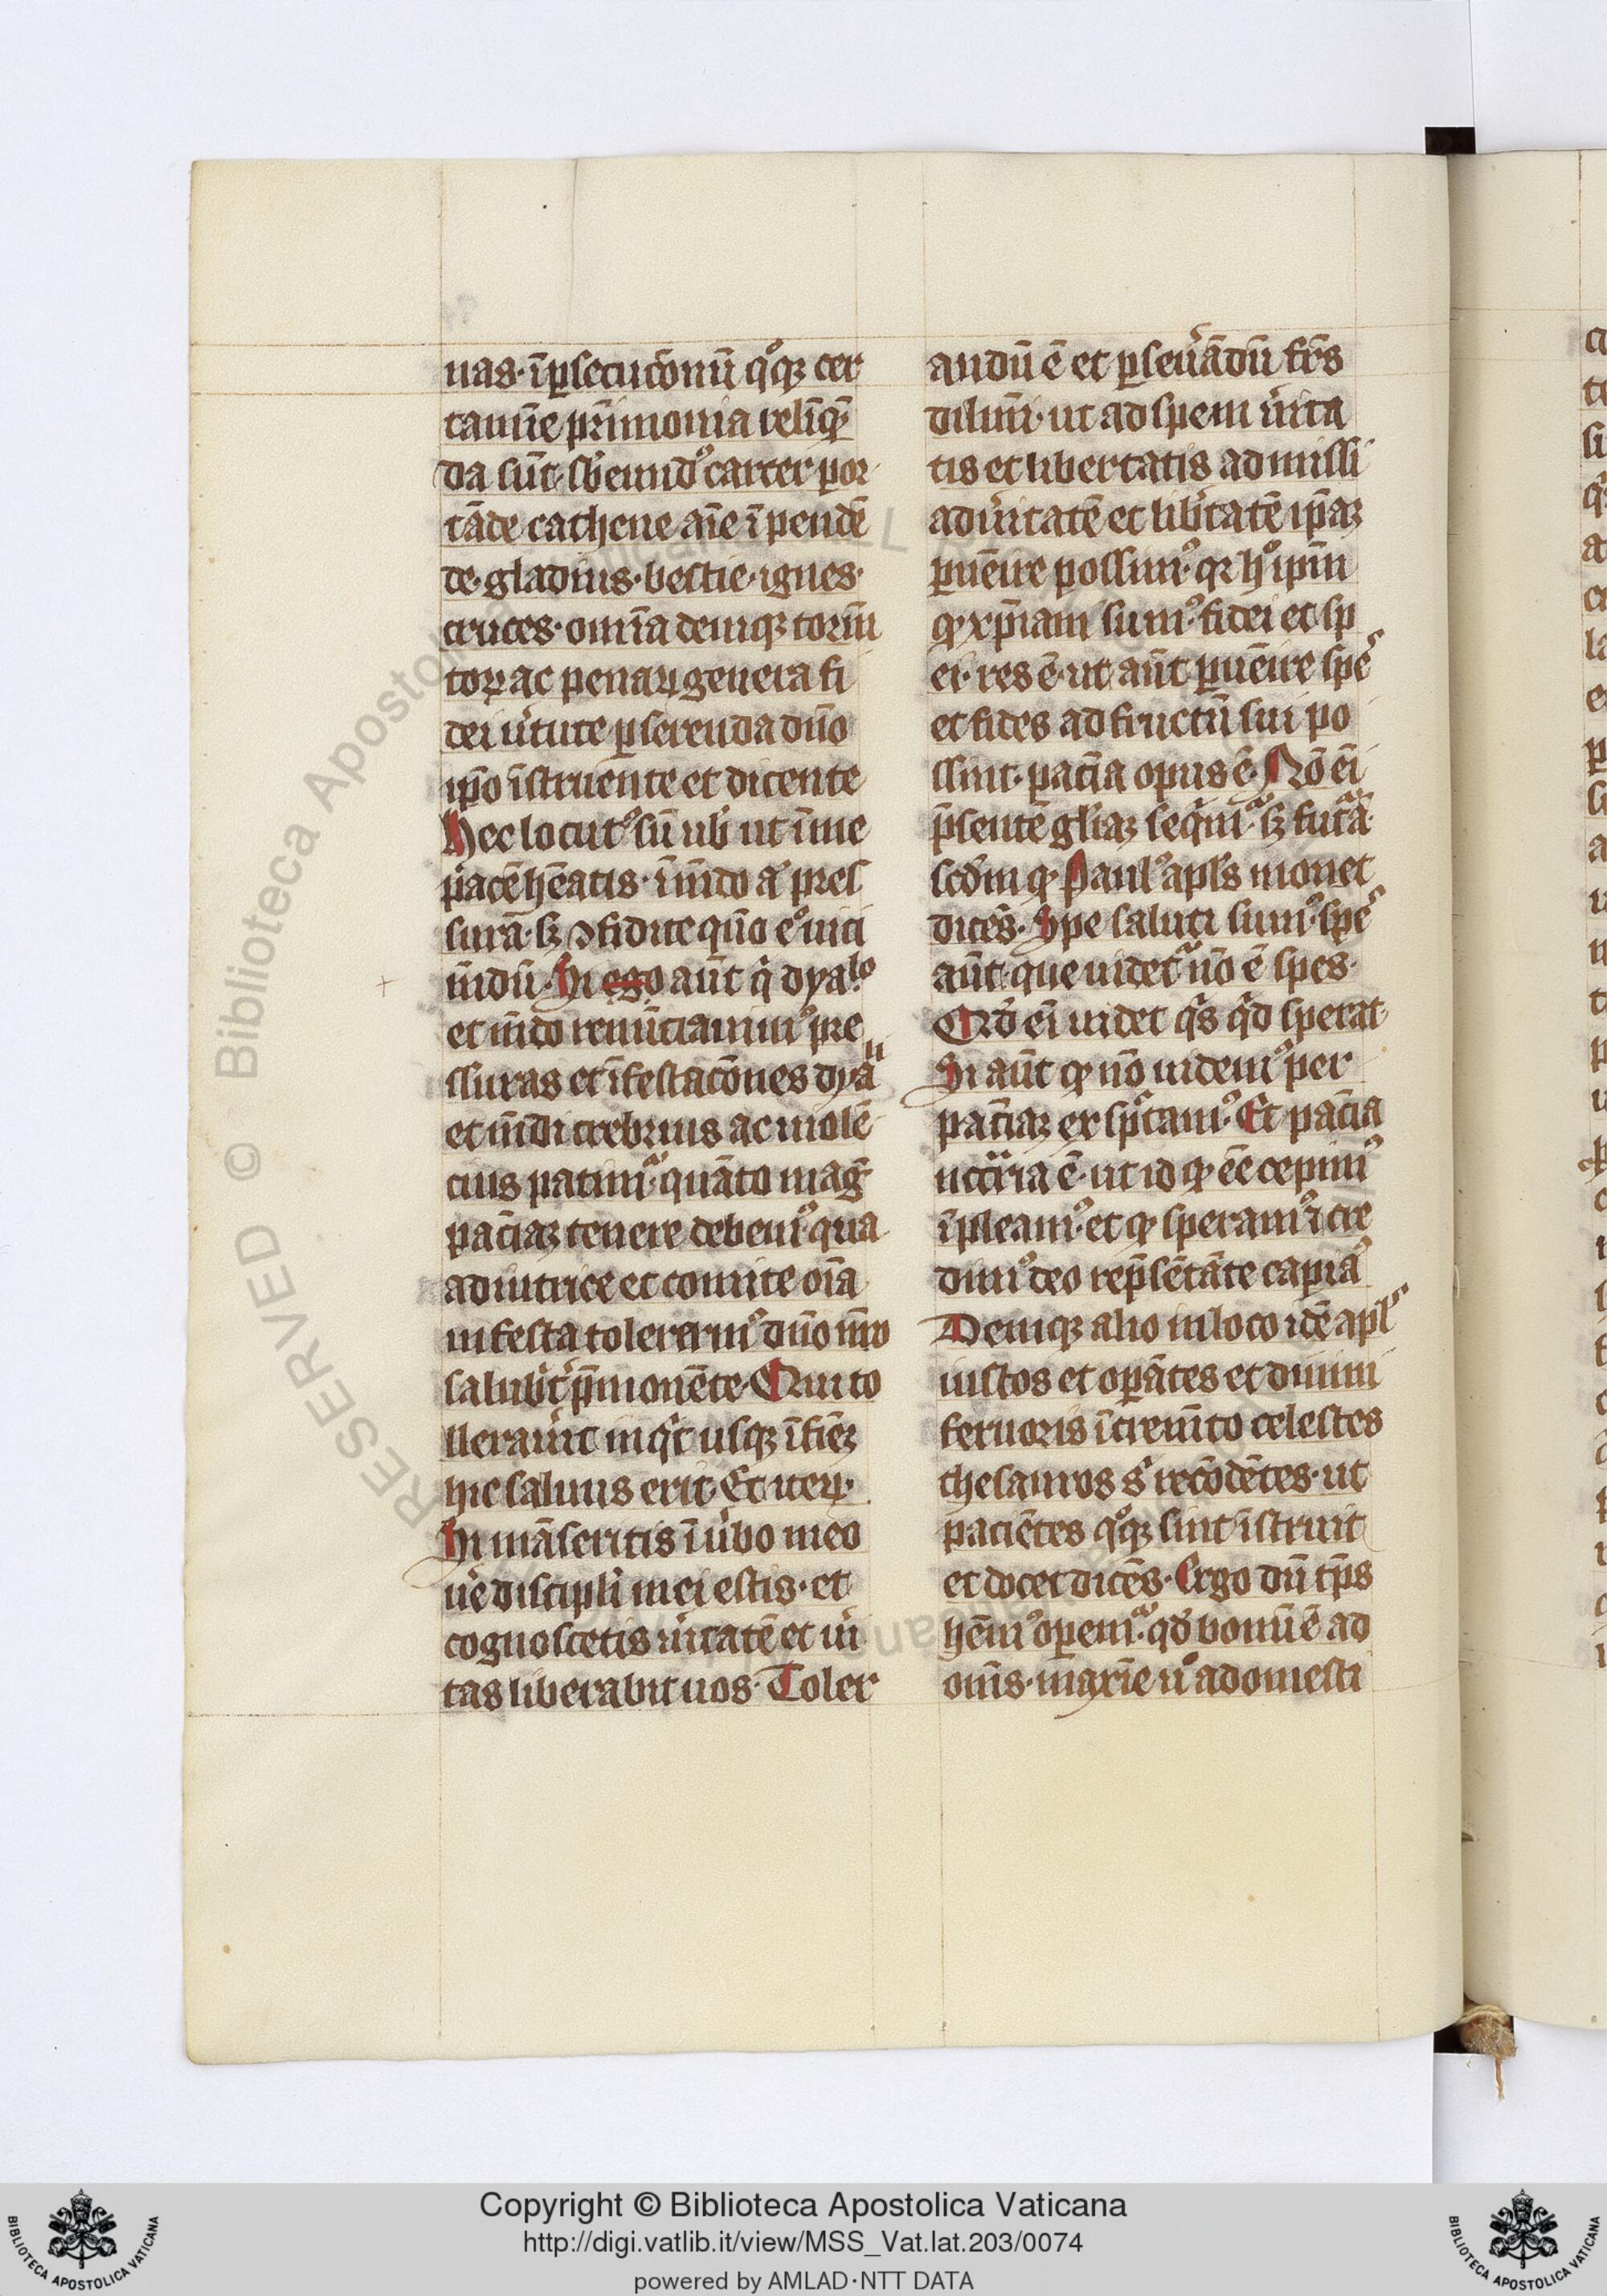 nas· ī ꝑsecuc̄onū qͦqꝫ cer
tamīe pr̄imonia relīqꝫ̄
da sūt· sb̓eund⁹ carcer por
tāde cathene aīe īpendē
de· gladius· bestie· ignes·
cruces· om̄ia deniqꝫ torm̄
toꝝ ac penaꝝ genera fi
dei u̓tute ꝑferenda dn̄o
ip̄o īstruente et dicente
Hec locut⁹ sū uob̓ ut ī me
pacē hēatis· ī mūdo aͫ pres
surā· sꝫ ꝯfidite qm̄o eͦ uici
mūdū· Si ego aūt q̓ dyalo
et mūdo renūciauim⁹ pre
ssuras et īfestac̄ones dyali
et mūdi crebrius ac uiolē
cius patimᷣ· quāto mag̓
pac̄iaꝫ tenere debem⁹ qua
adiutrice et comite oīa
infesta tolerem⁹ dn̄o nr̄o
salubr̓r p̄monēte· Qui to
llerau̓it inqͥt usqꝫ ī finēꝫ
hic saluus erit· Et iteꝝ·
Si māseritis ī u̓bo meo
ue̓ discipl̓i mei estis· et
cognoscetis u̓itatē et u̓i
tas liberabit uos· Toler
andū ē et ꝑseu̓ādū fr̄s
dil̄mi· ut ad spem u̓ita
tis et libertatis admissi
ad u̓itatē et lib̓tatē ip̄aꝫ
ꝑuēire possim⁹· qꝛ hͦ ip̄m
qꝙ xp̄iani sum⁹ fidei et sp
ei· res ē· ut aūt ꝑuēire spes
et fides ad fructū sui po
ssint· pac̄ia opus ē· Nō ei̓
p̄sentē gl̓iaꝫ seqͥmᷣ· sꝫ futᷓā·
scdm̄ qꝙ Paul⁹ apl̓s monet
dicēs· Spe salu̓ti sum⁹· spes
aūt· que uidetᷣ nō ē spes·
Qd̓ ei̓ uidet qͥs qͥd sperat
Si aūt qꝙ nō uidem⁹ per
pac̄iaꝫ exspectam⁹· Et pac̄ia
ncc̄ria ē· ut id qꝙ eē cepim⁹
īpleam⁹· et qꝙ speram⁹ ⁊ cre
dim⁹ deo rep̄sētāte capiam⁹
Deniqꝫ alio in loco idē apl̓s
iustos et oꝑātes et diuini
feruoris īcremēto celestes
thesauros s̓ recōdētes· ut
paciētes qͦqꝫ sint īstruit
et docet dicēs· Ergo dū tp̄s
hēm⁹ oꝑemᷣ· qd̓ bonū ē ad
om̄s· maxīe uͦ ad domesti
Copyright © Biblioteca Apostolica Vaticana
http://digi.vatlib.it/view/MSS_Vat.lat.203/0074
powered by AMLAD·NTT DATA